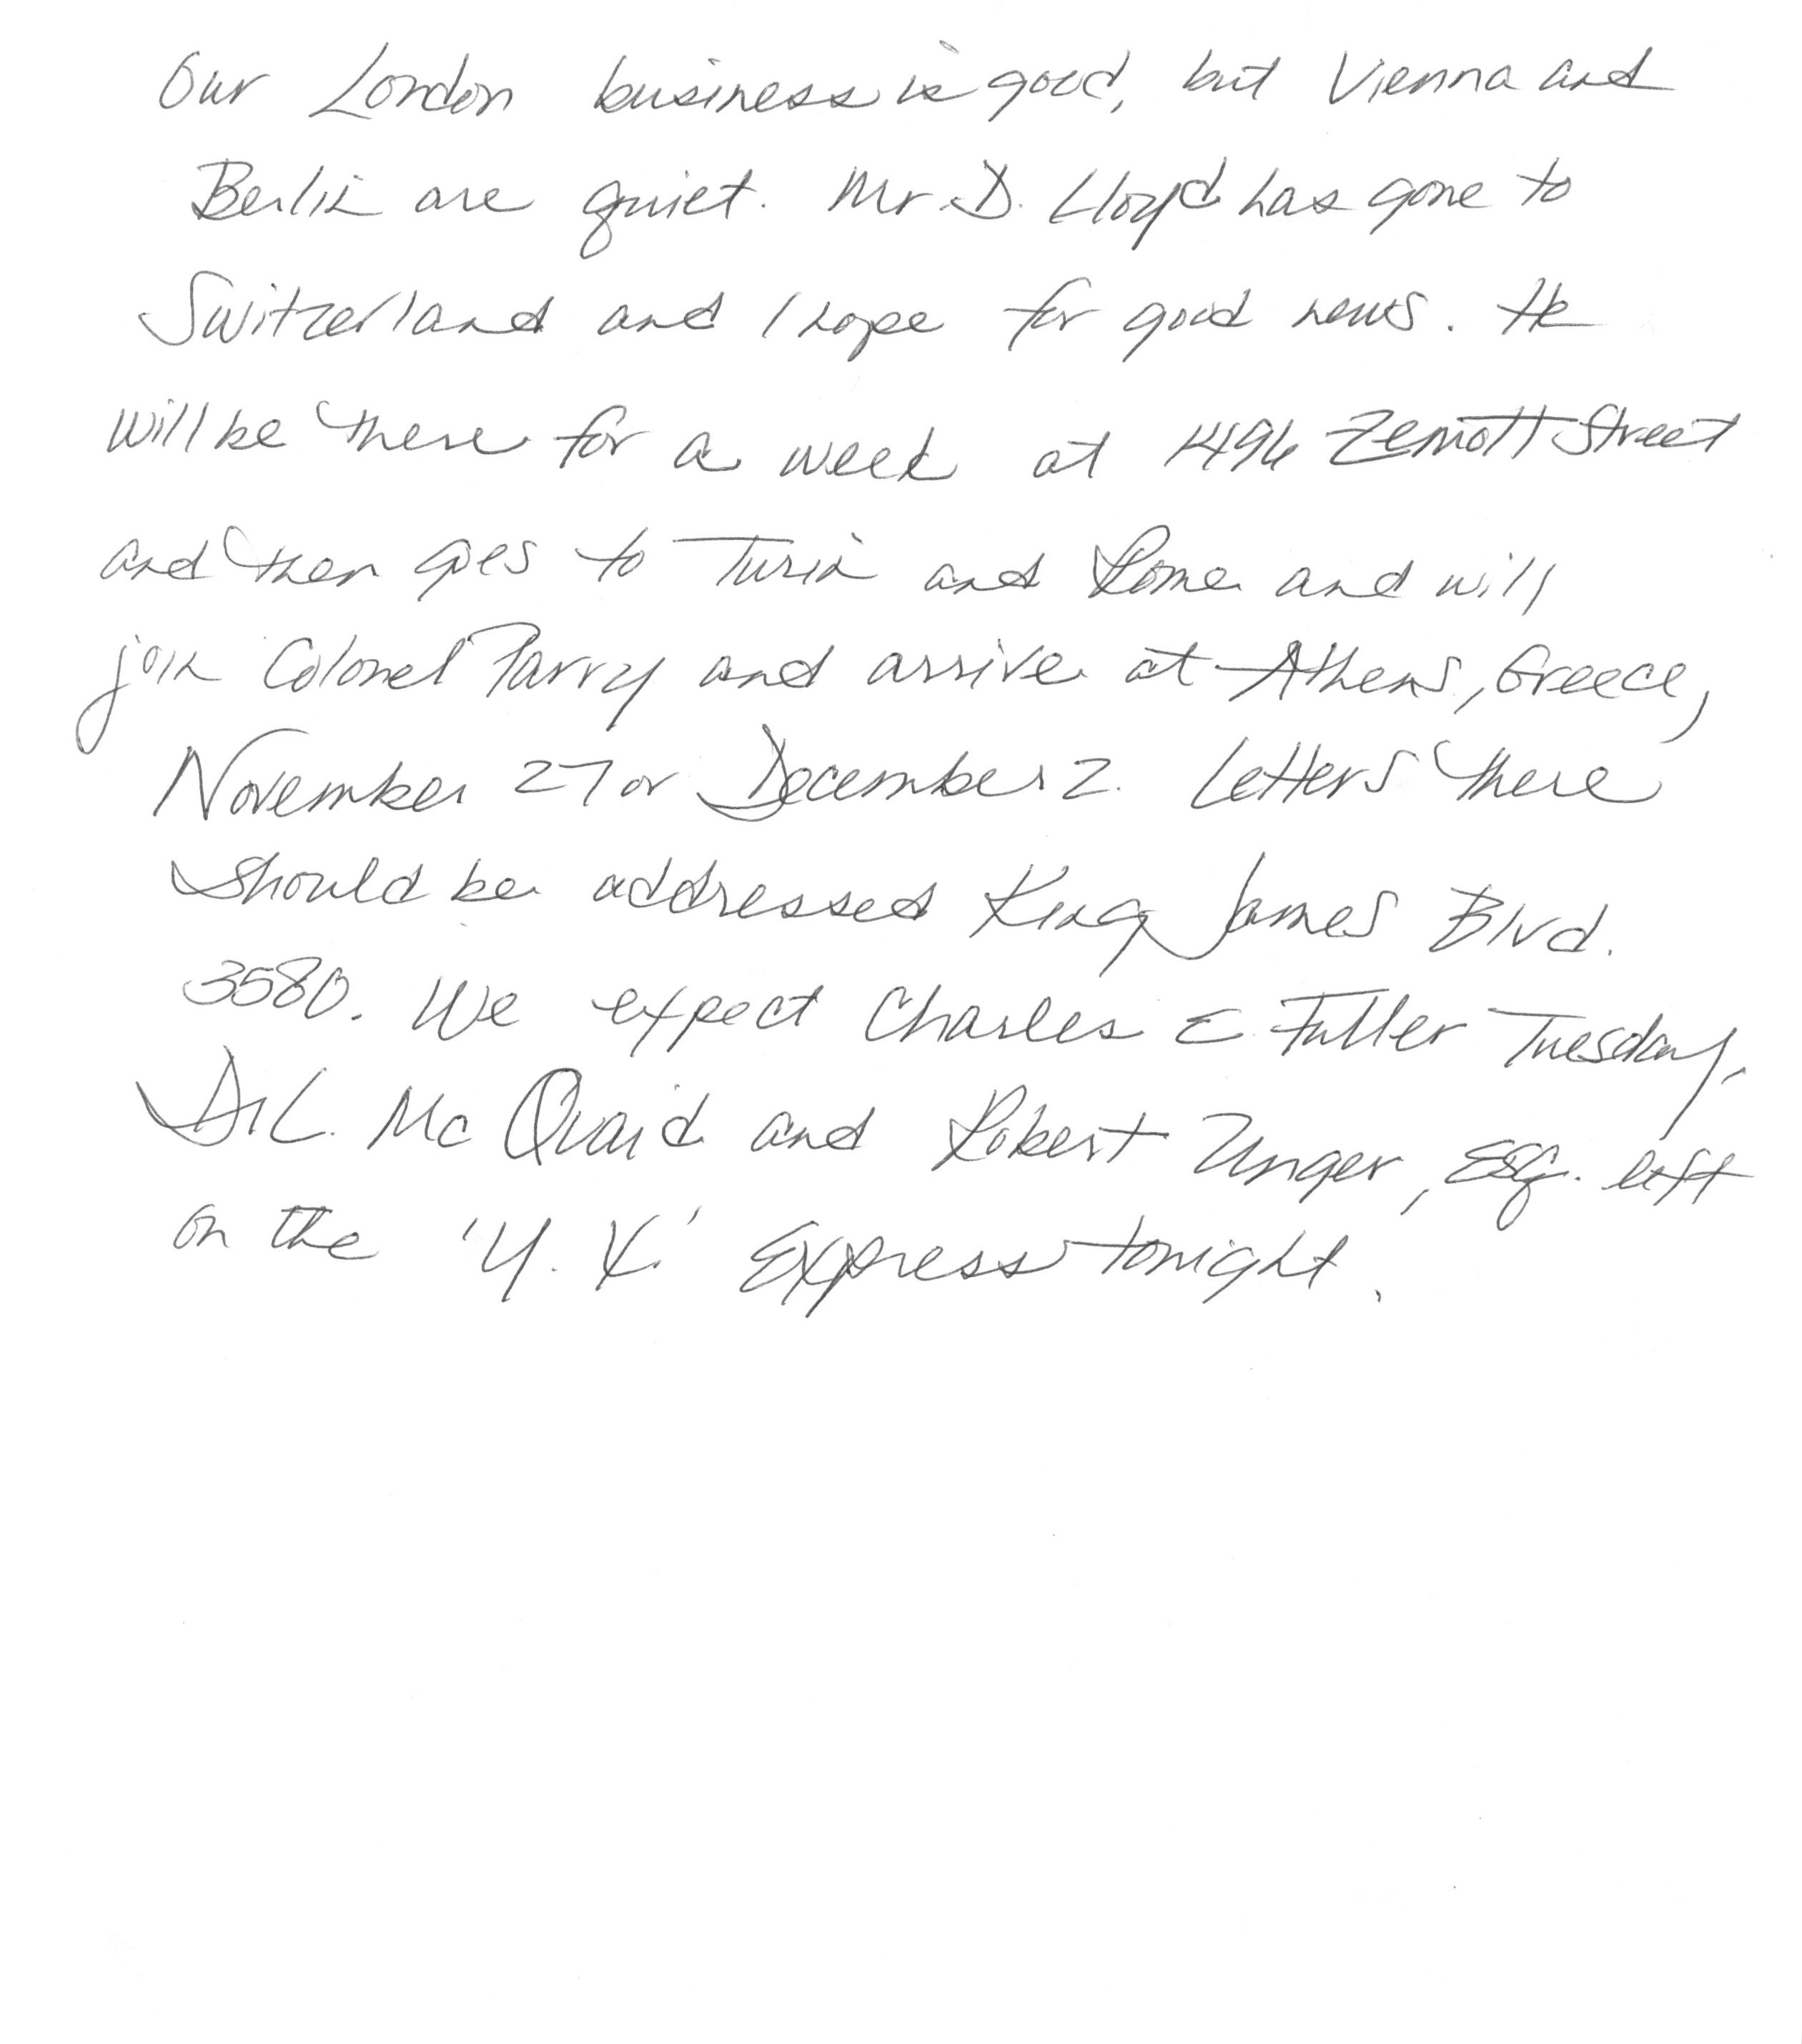 Our London business is good, but Vienna and
Berlin are quiet. Mr. D. Lloyd has gone to
Switzerland and I hope for good news. He
will be there for a week at 1496 Zermott Street
and then goes to Turin and Rome and will
join Colonel Parry and arrive at Athens, Greece,
November 27 or December 2. Letters there
should be addressed King James Blvd.
3580. We expect Charles E. Fuller Tuesday.
Dr. L. McQuaid and Robert Unger, Esq. left
on the 'Y. X.' Express tonight.